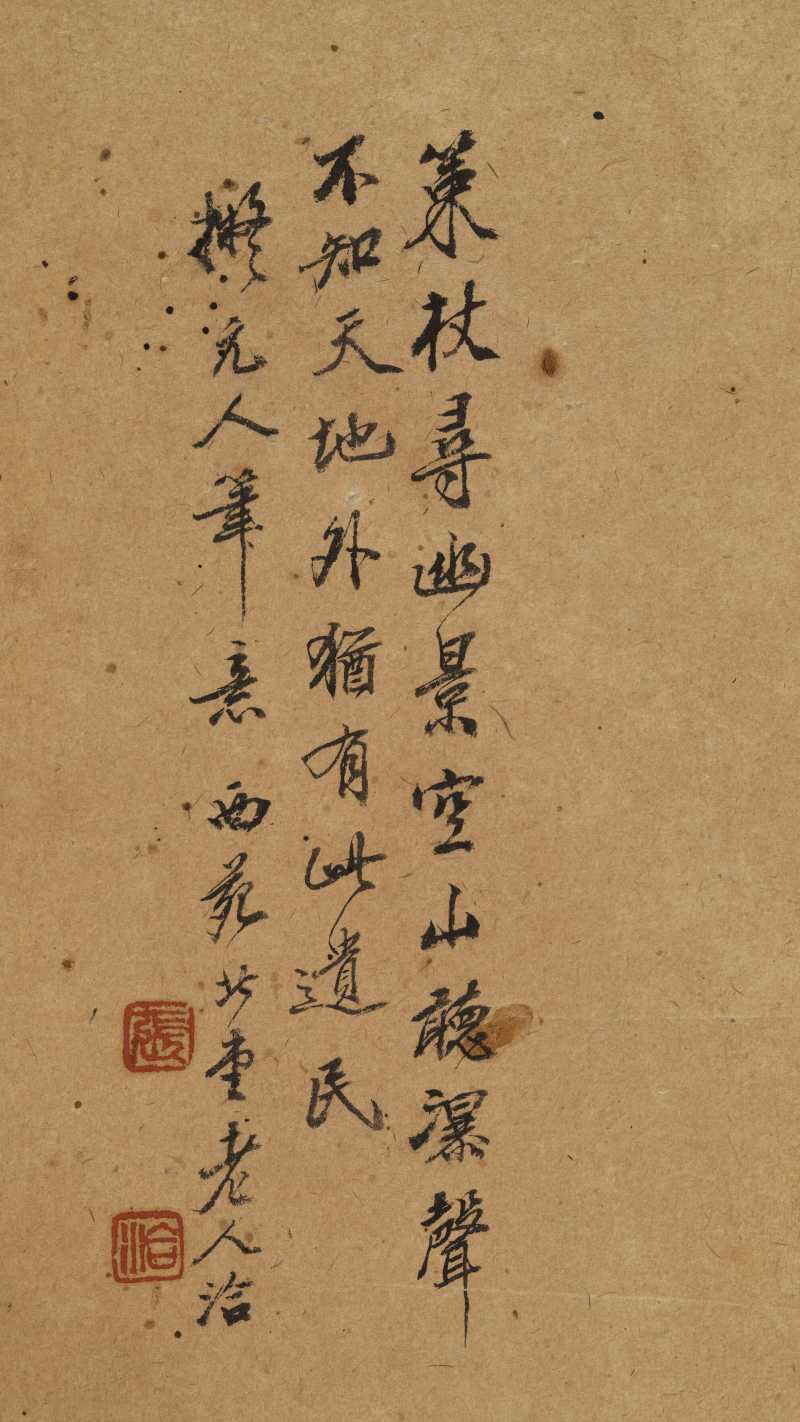 策杖尋幽景空山聽瀑聲
不知天地外猶有此遺民
擬元人筆意 西苑北堂老人洽
張
洽